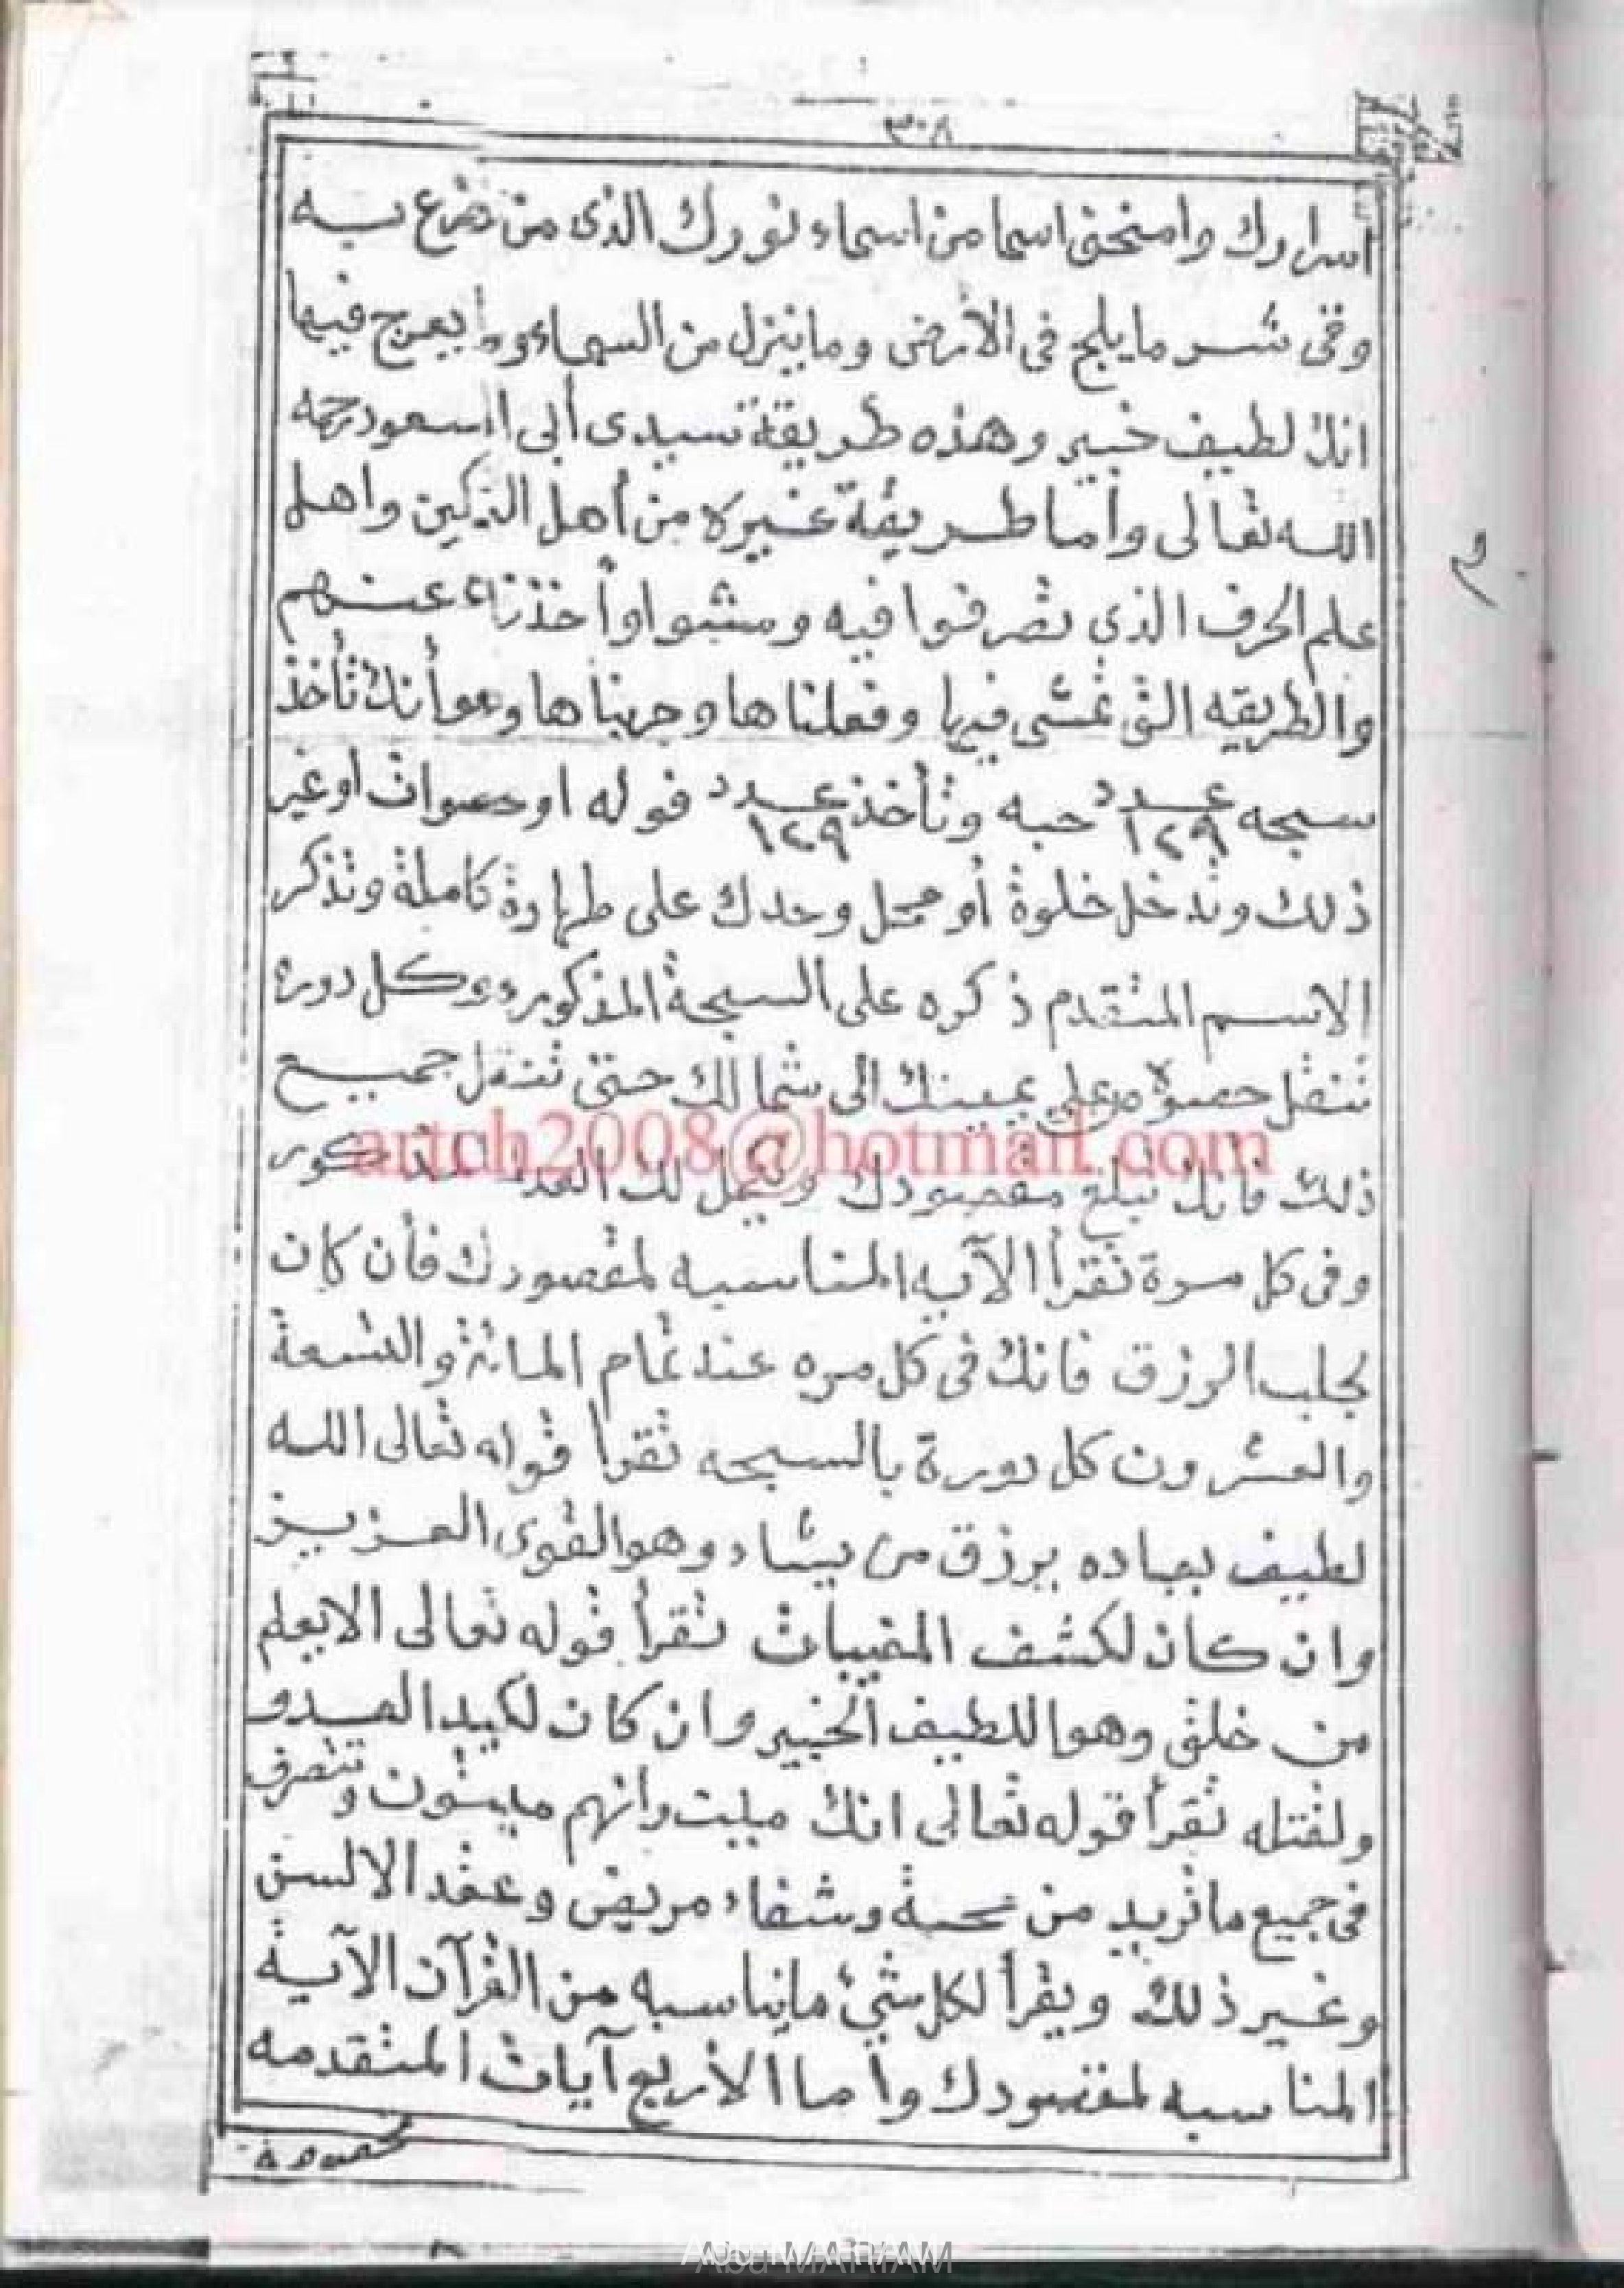 ٣٠٨
اسرارك وامنحنى اسما من اسماء نورك الذى من تدرع به
وقى شر ما يلج فى الأرض وما ينزل من السماء وما يعرج فيها
انك لطيف خبير وهذه طريقة سيدى أبى السعود رحمه
الله تعالى وأما طريقة غيره من أهل التمكين واهل
علم الحرف الذى تصرفوا فيه ومشوا وأخذناه عنهم
والطريقه التى نمشى فيها وفعلناها وجربناها وهو أنك تأخذ
سبحه عدد ١٢٩ حبه وتأخذ عدد ١٢٩ فوله او حصوات او غير
ذلك وتدخل خلوة أو محل وحدك على طهارة كاملة وتذكر
الاسم المتقدم ذكره على السبحة المذكوره وكل دورة
تنقل حصوة من على يمينك الى شمالك حتى تنقل جميع
ذلك فانك تبلغ مقصودك ويكمل لك العدد المذكور
وفى كل مرة تقرأ الآيه المناسبه لمقصودك فأن كان
لجلب الرزق فانك فى كل مره عند تمام المائة والتسعة
والعشرون كل دورة بالسبحه تقرأ قوله تعالى الله
لطيف بعباده يرزق من يشاء وهو القوى العزيز
وان كان لكشف المغيبات تقرأ قوله تعالى الا يعلم
من خلق وهو اللطيف الخبير وان كان لكيد العدو
ولقتله تقرأ قوله تعالى انك ميت وانهم ميتون وتتصرف
فى جميع ما تريد من محبة وشفاء مريض وعقد الالسن
وغير ذلك ويقرأ لكل شئ ما يناسبه من القرآن الآية
المناسبه لمقصودك وأما الأربع آيات المتقدمه
artch2008@hotmail.com
Abu MARIAM